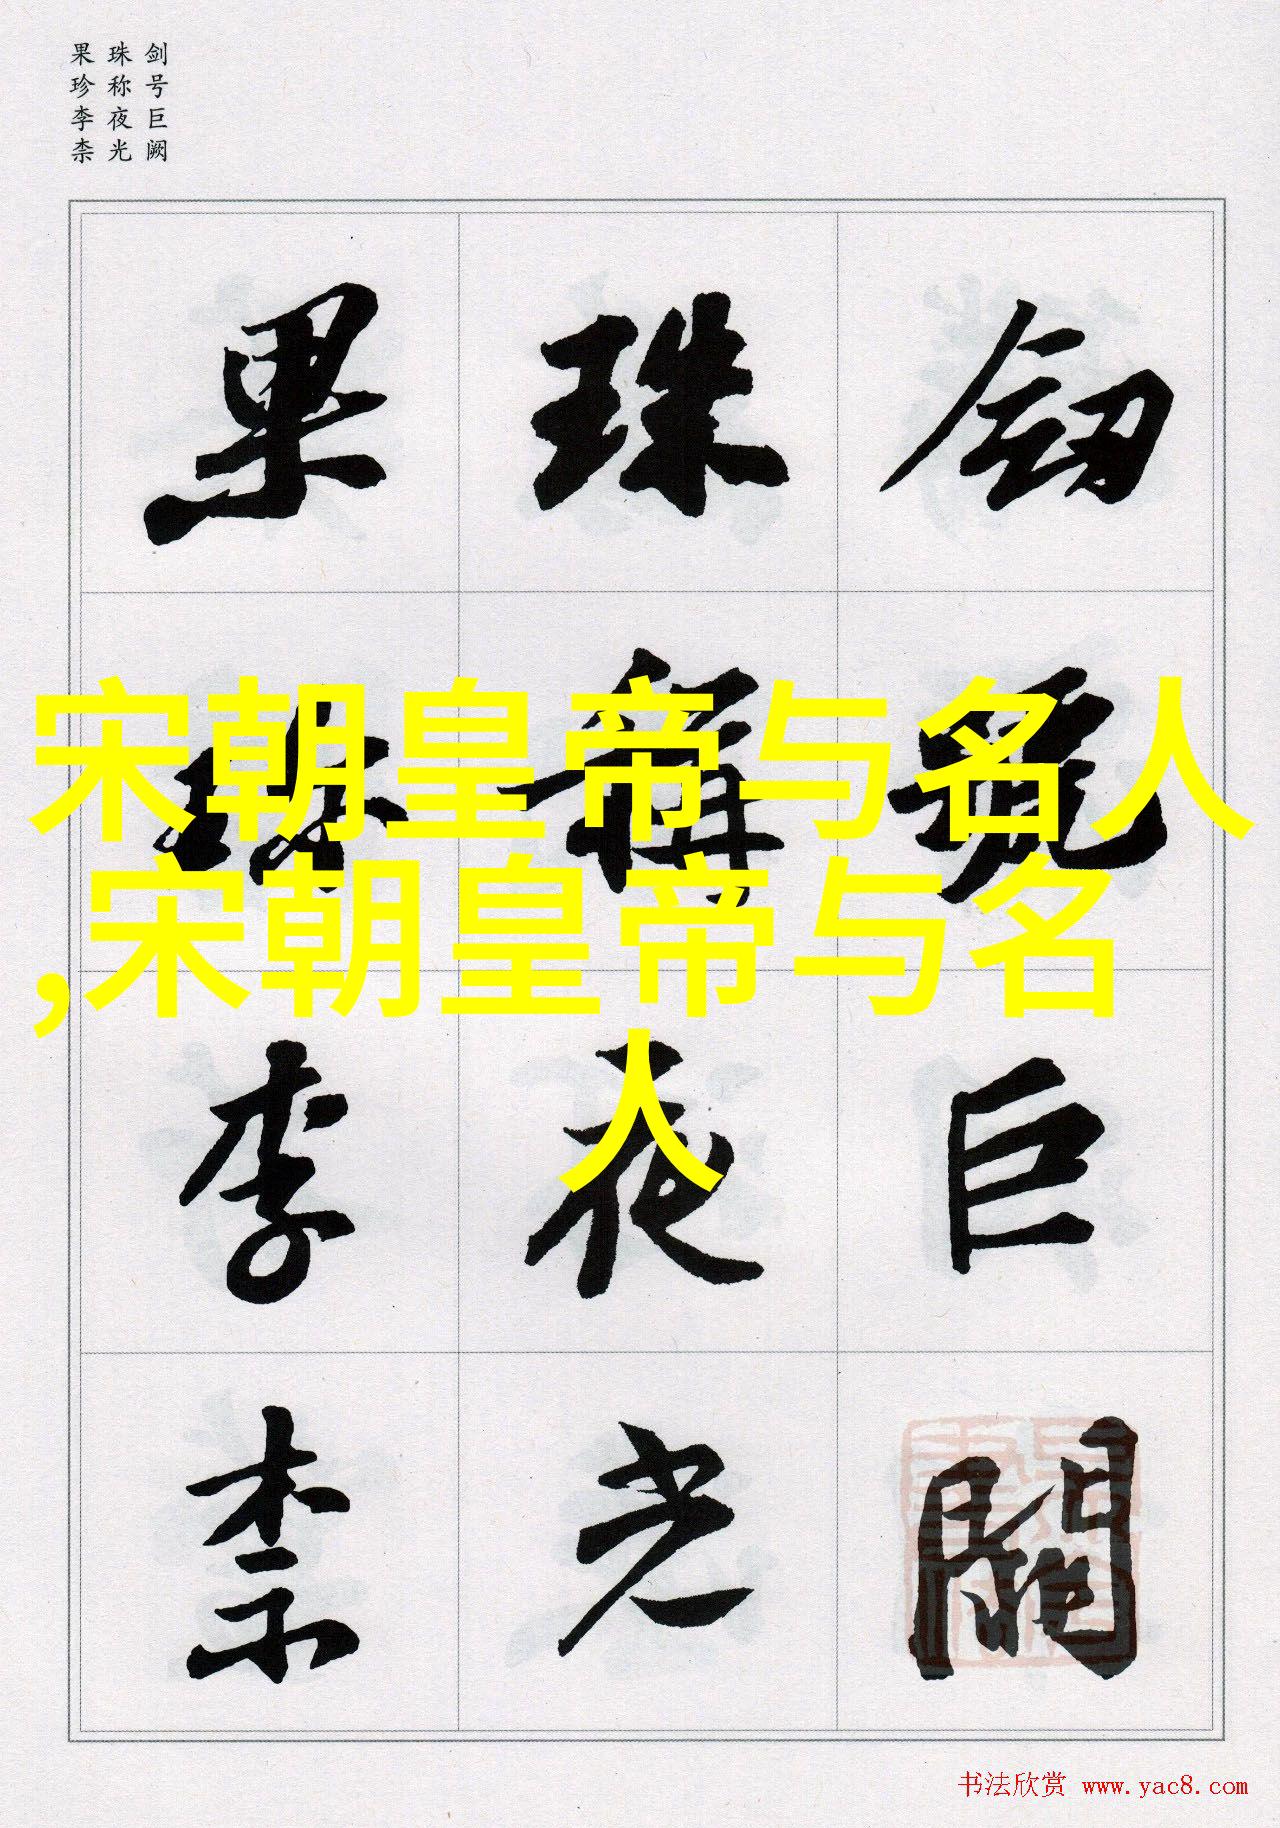 剑号巨阙
珠称夜光
果珍李柰
釼號巨闕
珠稱夜光
果珍李柰
宋朝皇帝与名人
,宋朝皇帝与名
人
书法欣赏 www.yac8.com